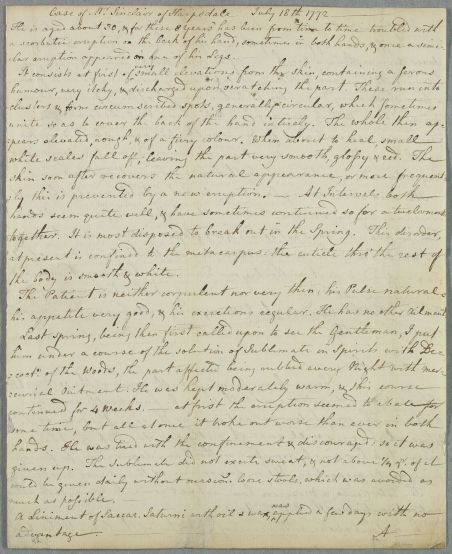 Case of Mr Sinclair of Harpsdale July 18th 1772
He is aged about 50, & for these 8 years has been from time to time troubled with
a scorbutic eruption on the back of his hand, sometimes in both hands, & once a simi-
lar eruption appeared on one of his Legs.
It consists at first of very small elevations from the skin, containing a serous
humour, very itchy, & discharged upon scratching the part. These run into
clusters & form circumscribed spots, generally circular, which sometimes
unite so as to cover the back of the hand intirely. The whole then ap-
pears elevated, rough & of a fiery colour. When about to heal, small
white scales fall off, leaving the part very smooth, glossy & red. The
skin soon after recovers the natural appearance, or more frequent-
ly this is prevented by a new eruption. — At Intervels both
hands seem quite well, & have sometimes continued so for a twelvemonth
together. It is most disposed to break out in the Spring. This disorder,
at present is confined to the metacarpus: the cuticle thro' the rest of
the body is smooth & white.
The Patient is neither corpulent nor very thin: his Pulse natural:
his appetite very good, & his excretions regular. He has no other Ailment
Last spring, being then first called upon to see the Gentleman, I put
him under a course of the solution of Sublimate in Spirits with De-
coct: of the Woods, the part affected being rubbed every Night with mer-
curial Ointment. He was kept moderately warm, & this course
continued for 4 weeks. — at first the eruption seemed to abate for
some time, but all at once it broke out worse than ever in both
hands. He was tired with the confinement & discouraged: so it was
given up. The Sublimate did not excite sweat, & not above 1/4 gr. of it
could be given daily without occasioning loose stools, which was avoided as
much as possible. —
A Liniment of Saccar. Saturni with oil & wax was applied a few days with no
advantage —